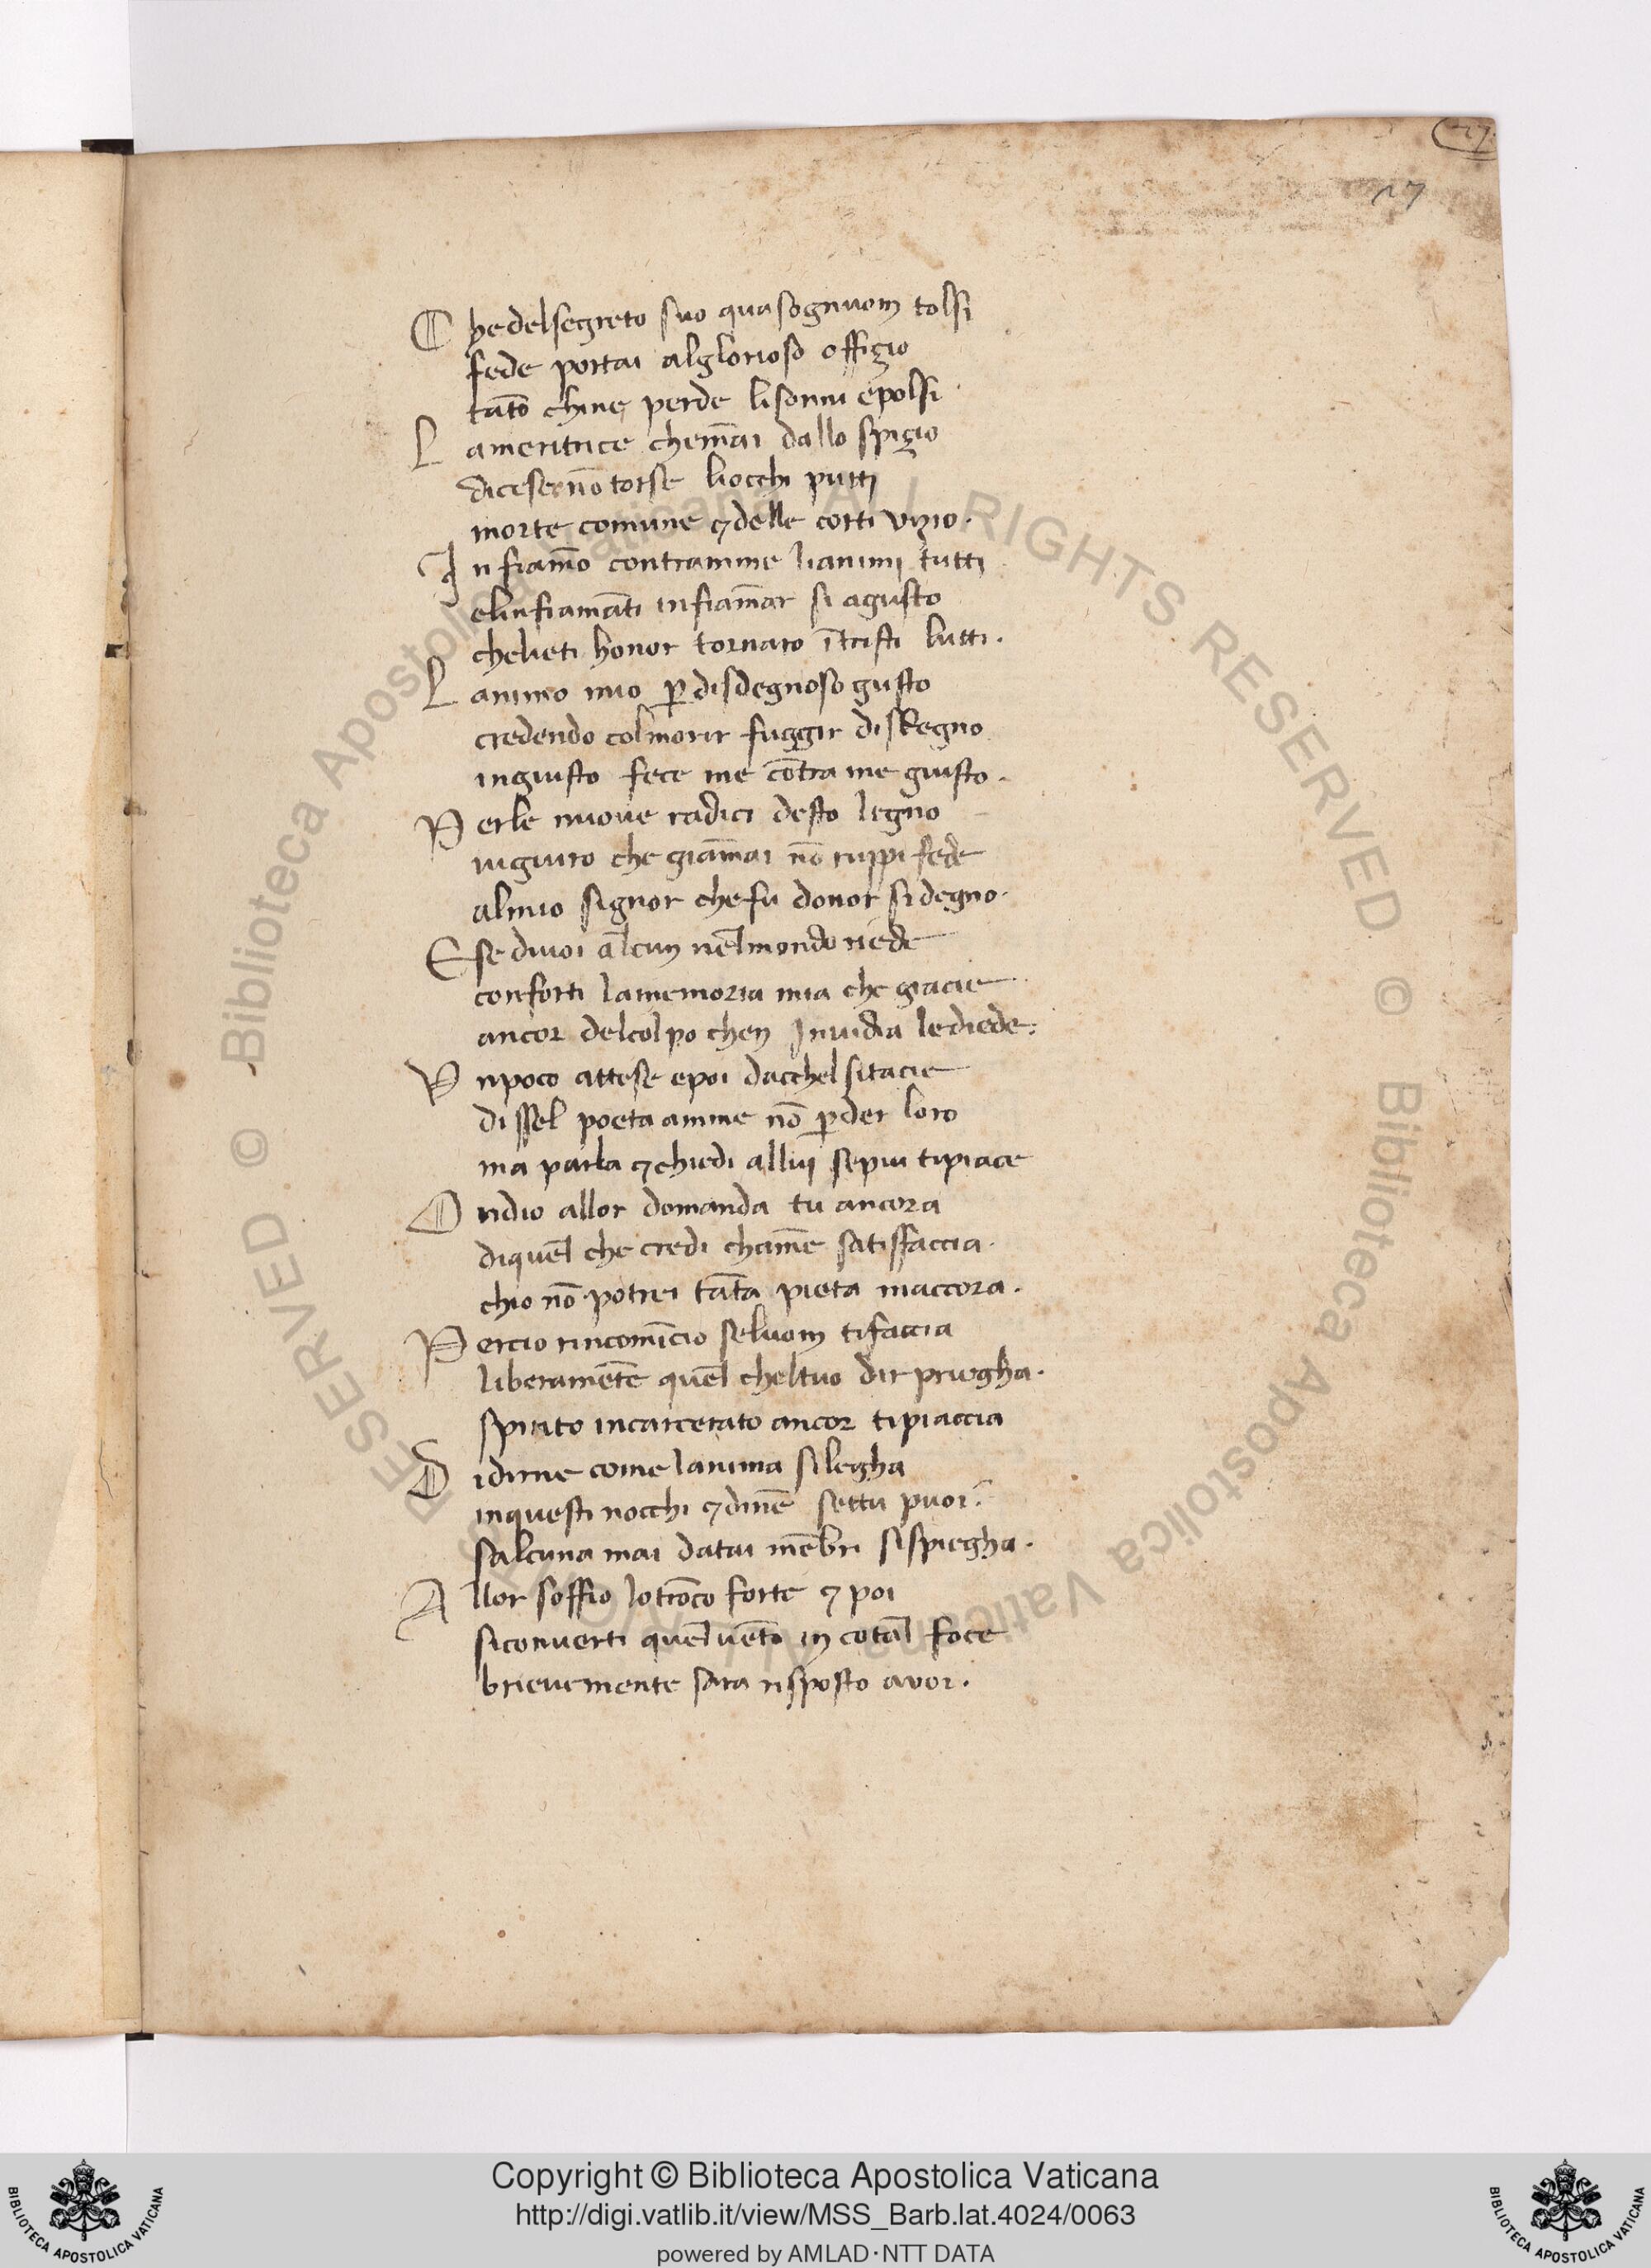 27
27
C hedelsegreto suo quasognuom tolsi
fede portai alglorioso offigio
tāto chine perde lisonni epolsi
L ameritrice chemāi dallo spigio
dicesernō torse liocchi putti
morte comune ⁊delle corti vizio.
I nfiamō contramme lianimi tutti
elinfiamāti infiamar si agusto
chelieti honor tornaro ī tristi lutti.
L animo mio ꝑ disdegnoso gusto
credendo colmorir fuggir diskegno
ingiusto fece me cōtra me giusto.
P erle nuove radici desto legno
vigiuro che giamai nō ruppi fede
almio signor chefu donor sidegno.
E se divoi alcun nelmondo riede
conforti lamemoria mia che giacie
ancor delcolpo chen Invidia lediede.
V npoco attese epoi dacchel sitacie
dissel poeta amme nō ꝑder loro
ma parla ⁊chiedi allui sepiu tipiace
O ndio allor domanda tu ancora
diquel che credi chame satisfaccia.
chio nō potrei tāta pieta maccora.
P ercio rincomīcio seluom tifaccia
liberamēte quel cheltuo dir priegha.
spirito incarcerato ancor tipiaccia
D idirne come lanima silegha
inquesti nocchi ⁊dinē settu puoi.
salcuna mai datai mēbri sispiegha.
A llor soffio lotrōco forte ⁊ poi
siconverti quel vēto in cotal foce
brievemente sara risposto avoi.
© Biblioteca Apostolica Vaticana ALL RIGHTS RESERVED © Biblioteca Apostolica Vaticana ALL RIGHTS RESERVED
Copyright © Biblioteca Apostolica Vaticana
http://digi.vatlib.it/view/MSS_Barb.lat.4024/0063
powered by AMLAD·NTT DATA
BIBLIOTECA APOSTOLICA VATICANA
BIBLIOTECA APOSTOLICA VATICANA